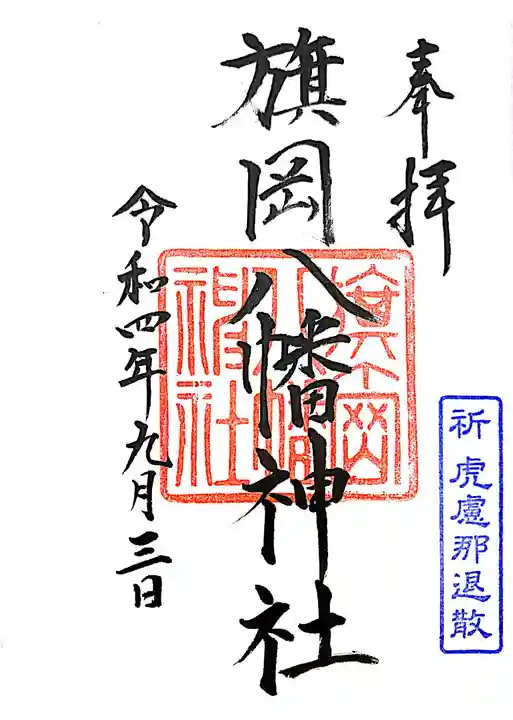 奉拝
旗岡八幡神社
旗岡八幡神社
令和四年九月三日
祈 虎慮那退散